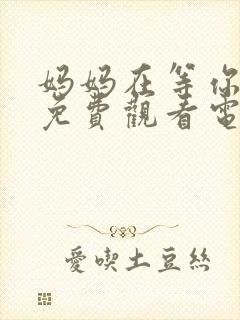 妈妈在等你
免費觀看電
愛喫土豆絲